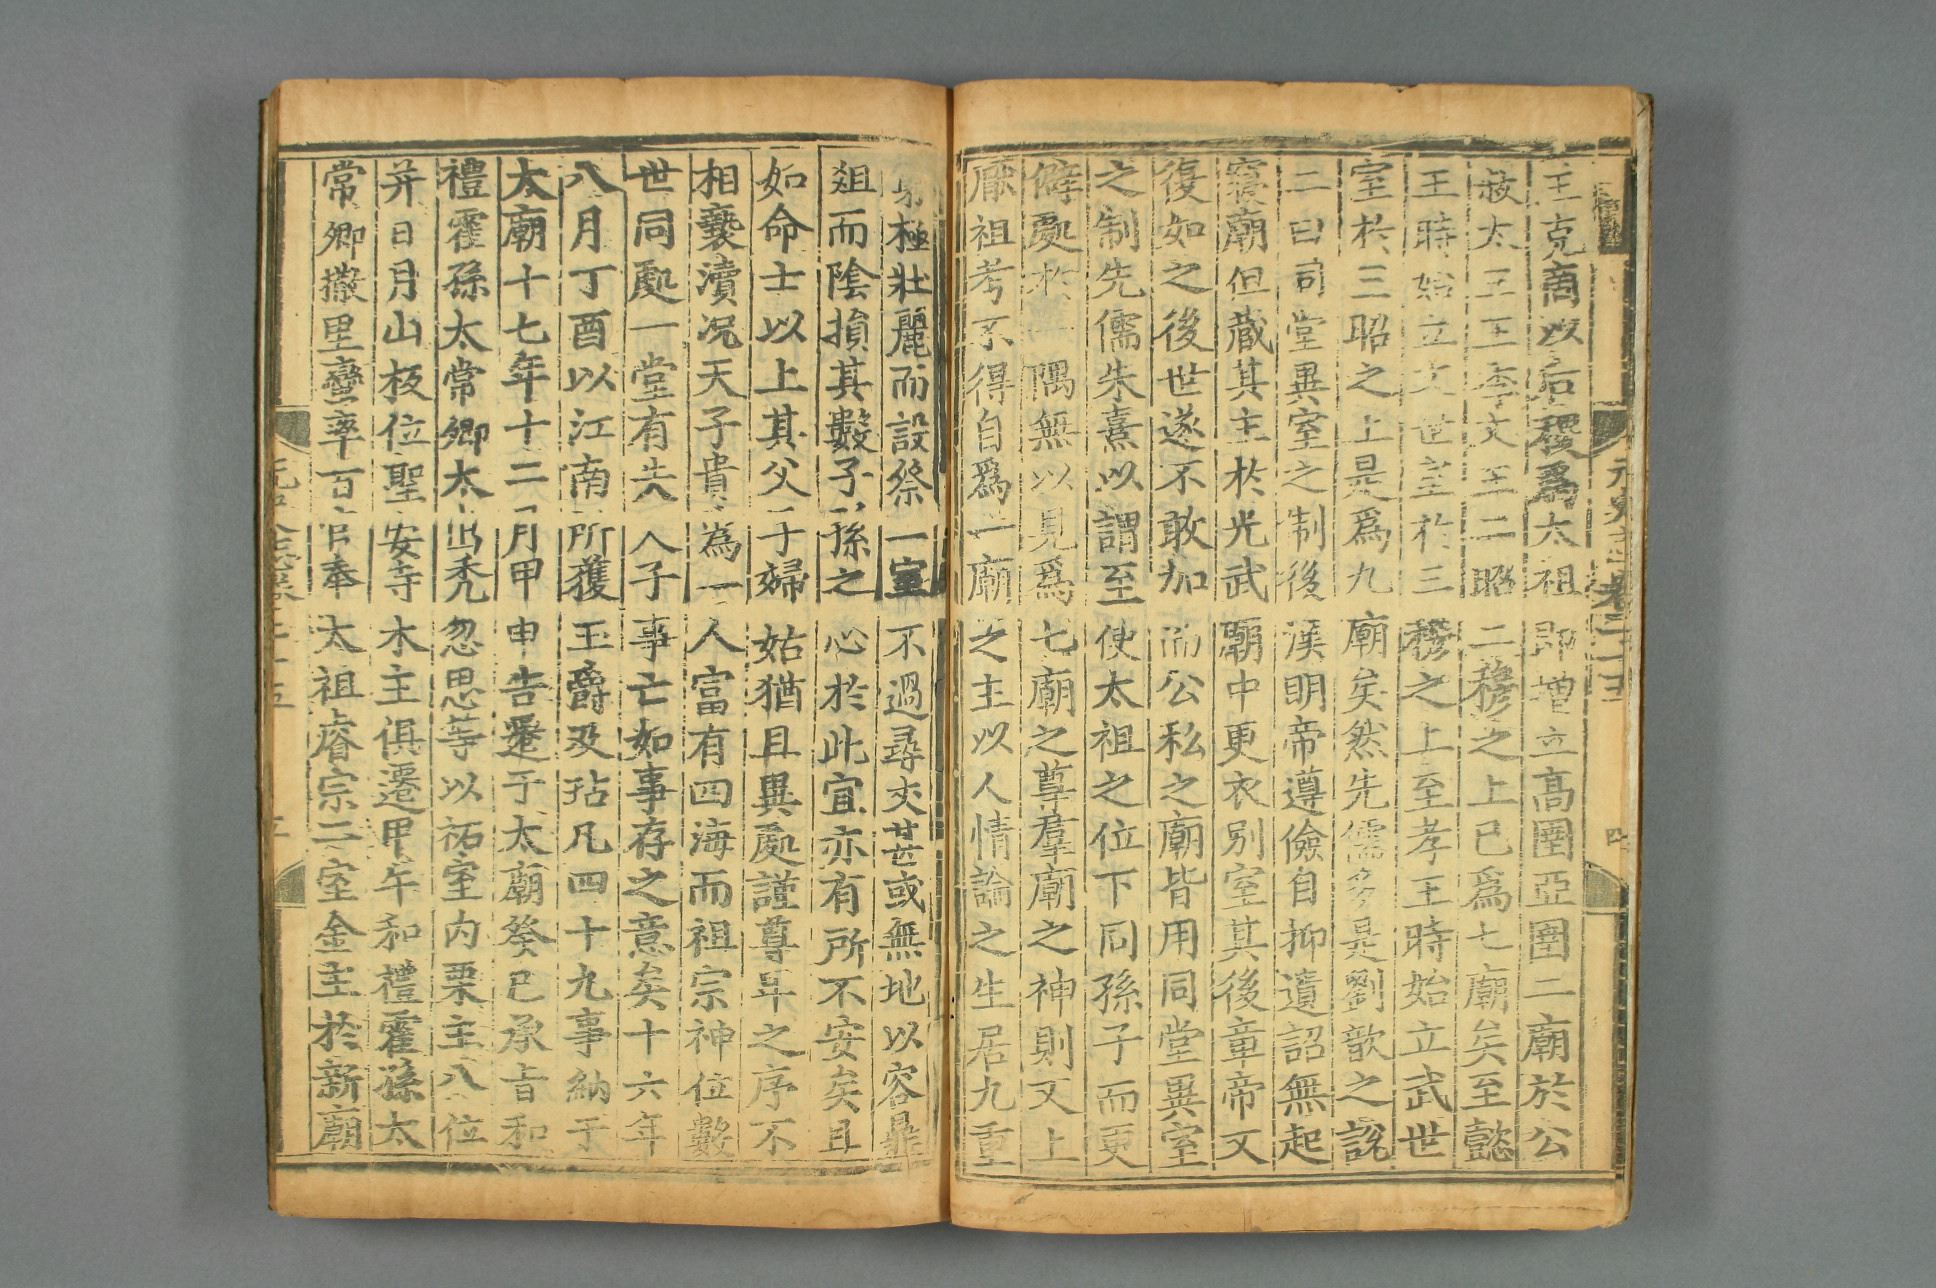 王克商以后稷爲太祖即増立髙圉亞圉二廟於公
叔太王王季文王二昭二穆之上已爲七廟矣至懿
王時始立文世室於三穆之上至孝王時始立武世
室於三昭之上是爲九廟矣然先儒多是劉歆之說
二曰同堂異室之制後漢明帝遵儉自抑遺詔無起
寢廟但藏其主於光武廟中更衣別室其後章帝又
復如之後世遂不敢加而公私之廟皆用同堂異室
之制先儒朱熹以謂至使太祖之位下同孫子而更
僻處於一隅無以見爲七廟之尊羣廟之神則又上
厭祖考不得自爲一廟之主以人情論之生居九重
窮極壯麗而設祭一室不過尋丈甚或無地以容鼎
俎而陰損其數子孫之心於此宜亦有所不安矣且
如命士以上其父子婦姑猶且異處謹尊卑之序不
相褻瀆况天子貴爲一人富有四海而祖宗神位數
世同處一堂有失人子事亡如事存之意矣十六年
八月丁酉以江南所獲玉爵及坫凡四十九事納于
太廟十七年十二月甲申告遷于太廟癸巳承旨和
禮霍孫太常卿太出禿忽思等以祏室內栗主八位
并日月山板位聖安寺木主俱遷甲午和禮霍孫太
常卿撒里蠻率百官奉太祖睿宗二室金主於新廟
元史志卷二十五
五
元史志卷二十五
四